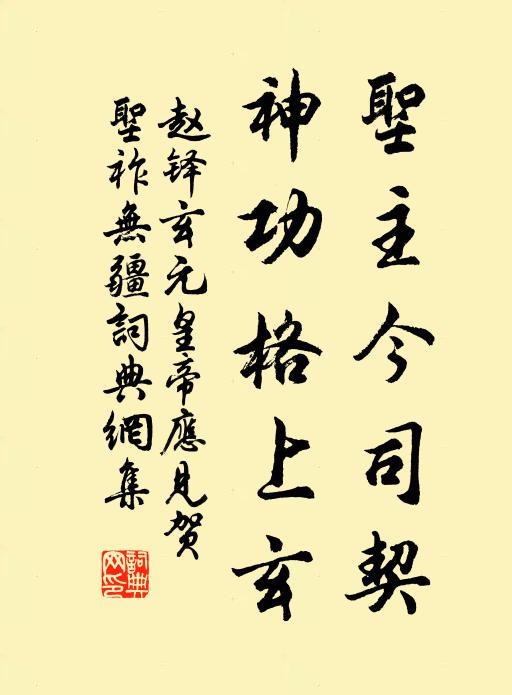 聖主今司契
神功格上玄
赵铎玄元皇帝應見贺
聖祚無疆詞典網集
詞典网印